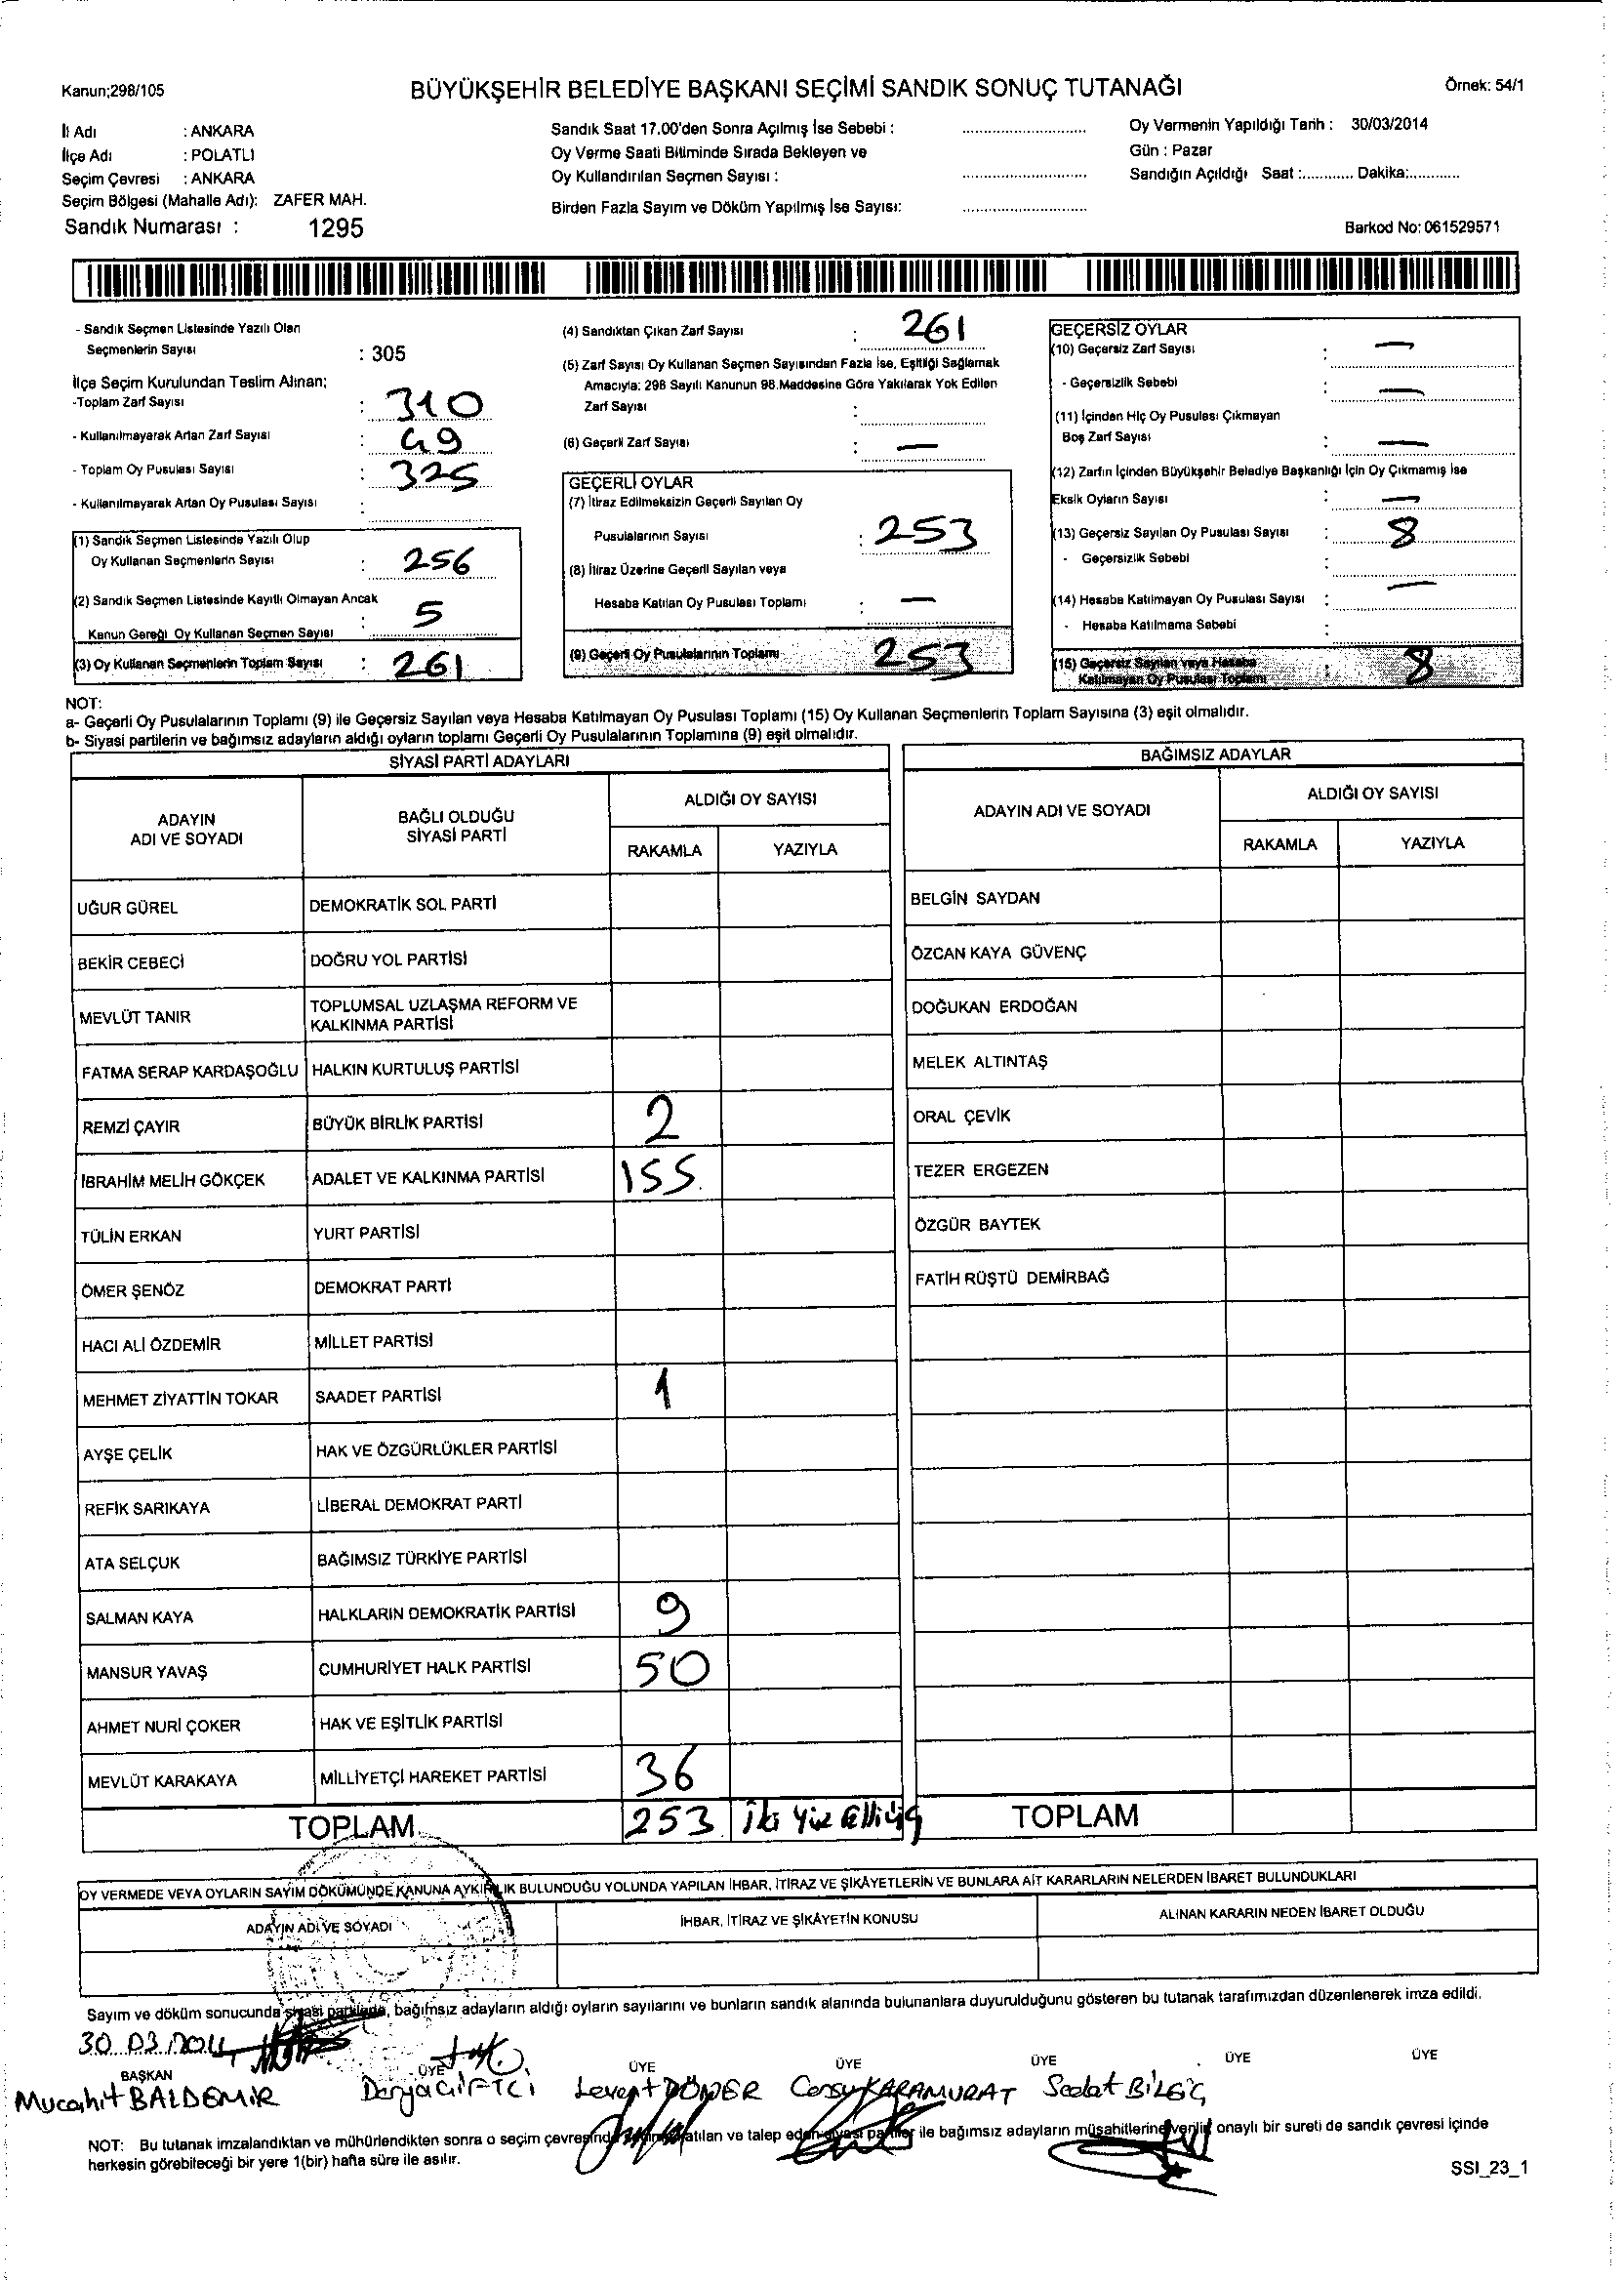 Kanun;298/105
BÜYÜKŞEHİR BELEDİYE BAŞKANI SEÇİMİ SANDIK SONUÇ TUTANAĞI
Örnek: 54/1
İl Adı : ANKARA
İlçe Adı : POLATLI
Seçim Çevresi : ANKARA
Seçim Bölgesi (Mahalle Adı): ZAFER MAH.
Sandık Numarası : 1295
Sandık Saat 17.00'den Sonra Açılmış İse Sebebi :
Oy Verme Saati Bitiminde Sırada Bekleyen ve
Oy Kullandırılan Seçmen Sayısı :
Birden Fazla Sayım ve Döküm Yapılmış İse Sayısı:
Oy Vermenin Yapıldığı Tarih : 30/03/2014
Gün : Pazar
Sandığın Açıldığı Saat :............ Dakika:............
Barkod No: 061529571
- Sandık Seçmen Listesinde Yazılı Olan
Seçmenlerin Sayısı : 305
İlçe Seçim Kurulundan Teslim Alınan;
-Toplam Zarf Sayısı : 310
- Kullanılmayarak Artan Zarf Sayısı : 49
- Toplam Oy Pusulası Sayısı : 325
- Kullanılmayarak Artan Oy Pusulası Sayısı :
(1) Sandık Seçmen Listesinde Yazılı Olup
Oy Kullanan Seçmenlerin Sayısı : 256
(2) Sandık Seçmen Listesinde Kayıtlı Olmayan Ancak
Kanun Gereği Oy Kullanan Seçmen Sayısı : 5
(3) Oy Kullanan Seçmenlerin Toplam Sayısı : 261
(4) Sandıktan Çıkan Zarf Sayısı : 261
(5) Zarf Sayısı Oy Kullanan Seçmen Sayısından Fazla İse, Eşitliği Sağlamak
Amacıyla; 298 Sayılı Kanunun 98.Maddesine Göre Yakılarak Yok Edilen
Zarf Sayısı :
(6) Geçerli Zarf Sayısı : —
GEÇERLİ OYLAR
(7) İtiraz Edilmeksizin Geçerli Sayılan Oy
Pusulalarının Sayısı : 253
(8) İtiraz Üzerine Geçerli Sayılan veya
Hesaba Katılan Oy Pusulası Toplamı : —
(9) Geçerli Oy Pusulalarının Toplamı 253
GEÇERSİZ OYLAR
(10) Geçersiz Zarf Sayısı : —
- Geçersizlik Sebebi : —
(11) İçinden Hiç Oy Pusulası Çıkmayan
Boş Zarf Sayısı : —
(12) Zarfın İçinden Büyükşehir Belediye Başkanlığı İçin Oy Çıkmamış İse
Eksik Oyların Sayısı : —
(13) Geçersiz Sayılan Oy Pusulası Sayısı : 8
- Geçersizlik Sebebi :
(14) Hesaba Katılmayan Oy Pusulası Sayısı : —
- Hesaba Katılmama Sebebi :
(15) Geçersiz Sayılan veya Hesaba
Katılmayan Oy Pusulası Toplamı : 8
NOT:
a- Geçerli Oy Pusulalarının Toplamı (9) ile Geçersiz Sayılan veya Hesaba Katılmayan Oy Pusulası Toplamı (15) Oy Kullanan Seçmenlerin Toplam Sayısına (3) eşit olmalıdır.
b- Siyasi partilerin ve bağımsız adayların aldığı oyların toplamı Geçerli Oy Pusulalarının Toplamına (9) eşit olmalıdır.
SİYASİ PARTİ ADAYLARI
ADAYIN
ADI VE SOYADI
BAĞLI OLDUĞU
SİYASİ PARTİ
ALDIĞI OY SAYISI
RAKAMLA YAZIYLA
UĞUR GÜREL DEMOKRATİK SOL PARTİ
BEKİR CEBECİ DOĞRU YOL PARTİSİ
MEVLÜT TANIR TOPLUMSAL UZLAŞMA REFORM VE
KALKINMA PARTİSİ
FATMA SERAP KARDAŞOĞLU HALKIN KURTULUŞ PARTİSİ
REMZİ ÇAYIR BÜYÜK BİRLİK PARTİSİ 2
İBRAHİM MELİH GÖKÇEK ADALET VE KALKINMA PARTİSİ 155
TÜLİN ERKAN YURT PARTİSİ
ÖMER ŞENÖZ DEMOKRAT PARTİ
HACI ALİ ÖZDEMİR MİLLET PARTİSİ
MEHMET ZİYATTİN TOKAR SAADET PARTİSİ 1
AYŞE ÇELİK HAK VE ÖZGÜRLÜKLER PARTİSİ
REFİK SARIKAYA LİBERAL DEMOKRAT PARTİ
ATA SELÇUK BAĞIMSIZ TÜRKİYE PARTİSİ
SALMAN KAYA HALKLARIN DEMOKRATİK PARTİSİ 9
MANSUR YAVAŞ CUMHURİYET HALK PARTİSİ 50
AHMET NURİ ÇOKER HAK VE EŞİTLİK PARTİSİ
MEVLÜT KARAKAYA MİLLİYETÇİ HAREKET PARTİSİ 36
TOPLAM 253 İki Yüz Elliüç
BAĞIMSIZ ADAYLAR
ADAYIN ADI VE SOYADI
ALDIĞI OY SAYISI
RAKAMLA YAZIYLA
BELGİN SAYDAN
ÖZCAN KAYA GÜVENÇ
DOĞUKAN ERDOĞAN
MELEK ALTINTAŞ
ORAL ÇEVİK
TEZER ERGEZEN
ÖZGÜR BAYTEK
FATİH RÜŞTÜ DEMİRBAĞ
TOPLAM
OY VERMEDE VEYA OYLARIN SAYIM DÖKÜMÜNDE KANUNA AYKIRILIK BULUNDUĞU YOLUNDA YAPILAN İHBAR, İTİRAZ VE ŞİKÂYETLERİN VE BUNLARA AİT KARARLARIN NELERDEN İBARET BULUNDUKLARI
ADAYIN ADI VE SOYADI
İHBAR, İTİRAZ VE ŞİKÂYETİN KONUSU
ALINAN KARARIN NEDEN İBARET OLDUĞU
Sayım ve döküm sonucunda siyasi partilerin, bağımsız adayların aldığı oyların sayılarını ve bunların sandık alanında bulunanlara duyurulduğunu gösteren bu tutanak tarafımızdan düzenlenerek imza edildi.
30.03.2014
BAŞKAN ÜYE ÜYE ÜYE ÜYE ÜYE ÜYE
Mucahit BALDEMİR Derya ÇİFTCİ Levent DÖNER Cansu KARAMURAT Sedat BİLGİÇ
NOT: Bu tutanak imzalandıktan ve mühürlendikten sonra o seçim çevresinde seçime katılan ve talep eden siyasi partiler ile bağımsız adayların müşahitlerine verilir onaylı bir sureti de sandık çevresi içinde
herkesin görebileceği bir yere 1(bir) hafta süre ile asılır.
SSI_23_1